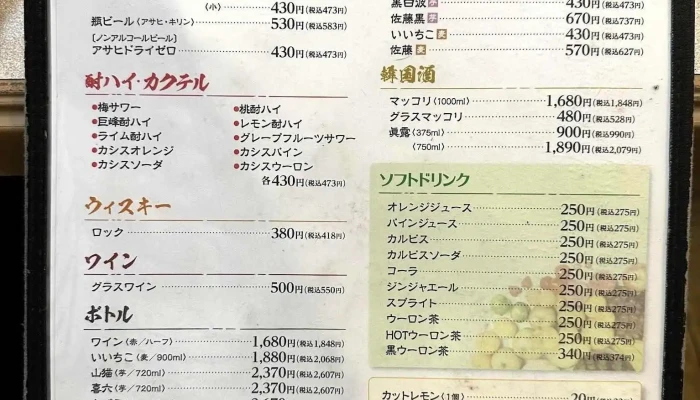 (小) 430円(税込473円)
瓶ビール(アサヒ・キリン) 530円(税込583円)
[ノンアルコールビール]
アサヒドライゼロ 430円(税込473円)
酎ハイ・カクテル
●梅サワー
●巨峰酎ハイ
●ライム酎ハイ
●カシスオレンジ
●カシスソーダ
●桃酎ハイ
●レモン酎ハイ
●グレープフルーツサワー
●カシスパイン
●カシスウーロン
各430円(税込473円)
ウィスキー
ロック 380円(税込418円)
ワイン
グラスワイン 500円(税込550円)
ボトル
ワイン(赤/ハーフ) 1,680円(税込1,848円)
いいちこ(麦/900ml) 1,880円(税込2,068円)
山猫(芋/720ml) 2,370円(税込2,607円)
喜六(芋/720ml) 2,370円(税込2,607円)
黒白波 芋 430円(税込473円)
佐藤黒 芋 670円(税込737円)
いいちこ 麦 430円(税込473円)
佐藤 麦 570円(税込627円)
韓国酒
マッコリ(1000ml) 1,680円(税込1,848円)
グラスマッコリ 480円(税込528円)
眞露(375ml) 900円(税込990円)
(750ml) 1,890円(税込2,079円)
ソフトドリンク
オレンジジュース 250円(税込275円)
パインジュース 250円(税込275円)
カルピス 250円(税込275円)
カルピスソーダ 250円(税込275円)
コーラ 250円(税込275円)
ジンジャエール 250円(税込275円)
スプライト 250円(税込275円)
ウーロン茶 250円(税込275円)
HOTウーロン茶 250円(税込275円)
黒ウーロン茶 340円(税込374円)
カットレモン(1個) 20円